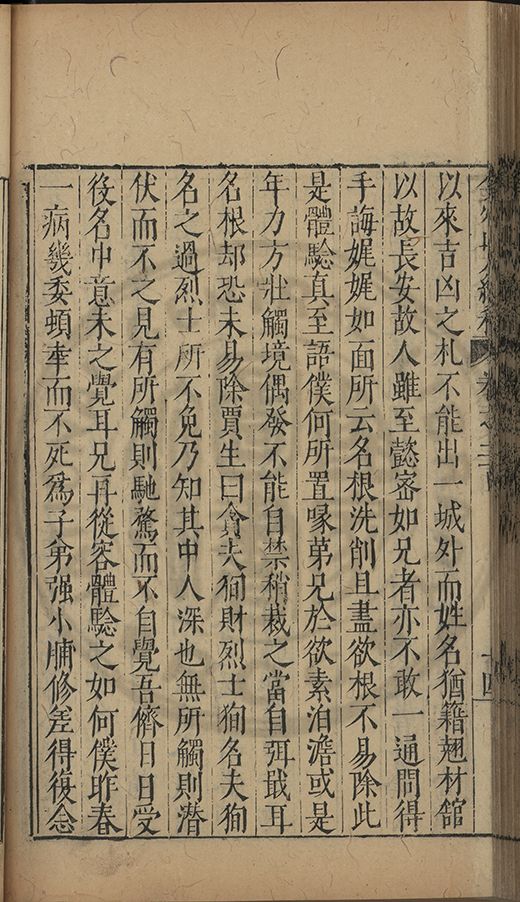 卷之 十四
以來吉凶之札不能出一城外而姓名猶籍翹材舘
以故長安故人雖至懿宻如兄者亦不敢一通問得
手誨娓娓如面所云名根洗削且盡欲根不易除此
是體驗真至語僕何所置喙第兄於欲素泊澹或是
年力方壯觸境偶發不能自禁稍裁之當自弭戢耳
名根却恐未易除賈生曰貪夫狥財烈士狥名夫狥
名之過烈士所不免乃知其中人深也無所觸則潜
伏而不之見有所觸則馳騖而不自覺吾儕日日受
役名中意未之覺耳兄再從容體驗之如何僕昨春
一病幾委頓幸而不死爲子弟强小脯修差得復念